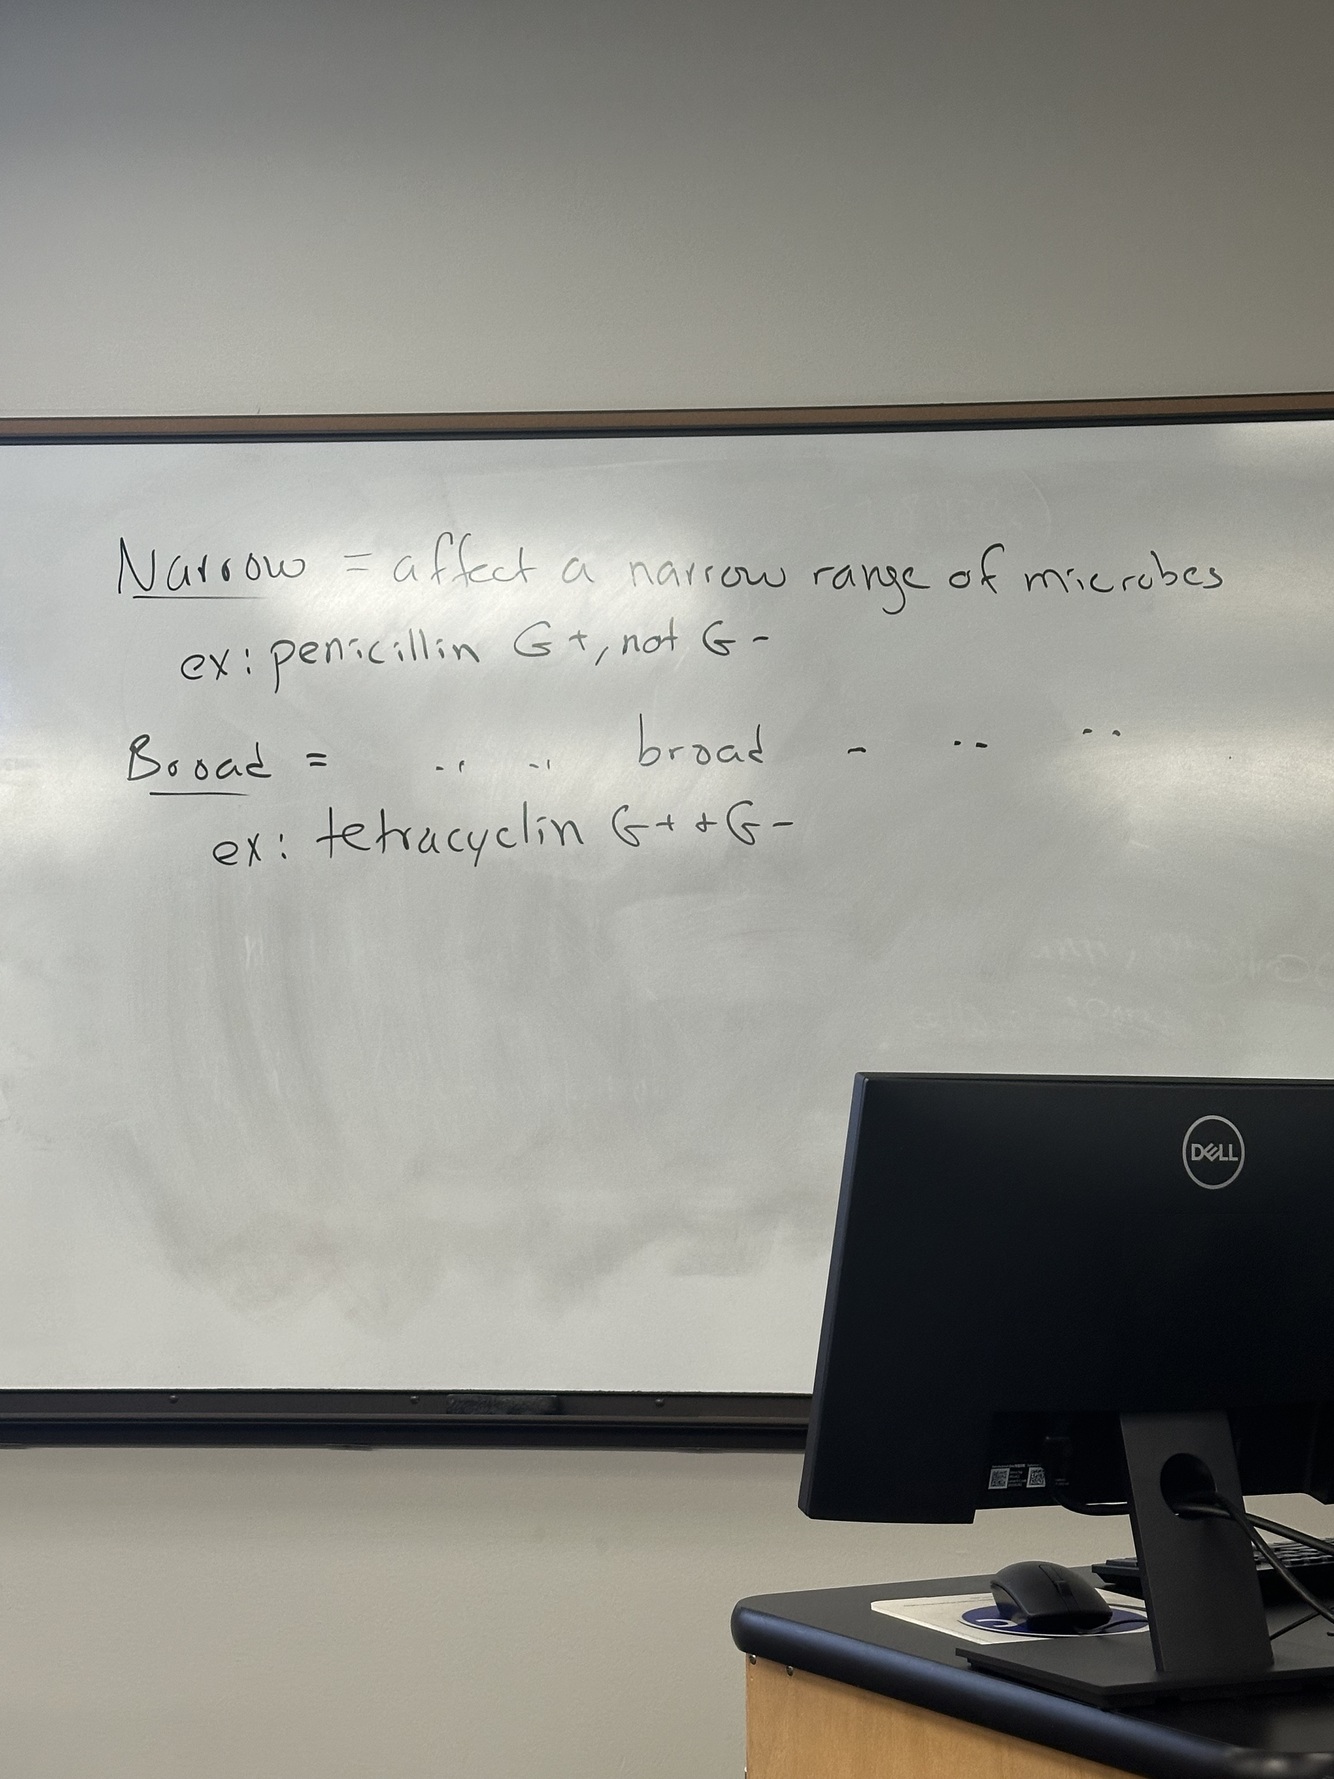 Narrow = affect a narrow range of microbes
ex: penicillin G+, not G-
Broad = " " broad - " "
ex: tetracyclin G+ + G-
DELL